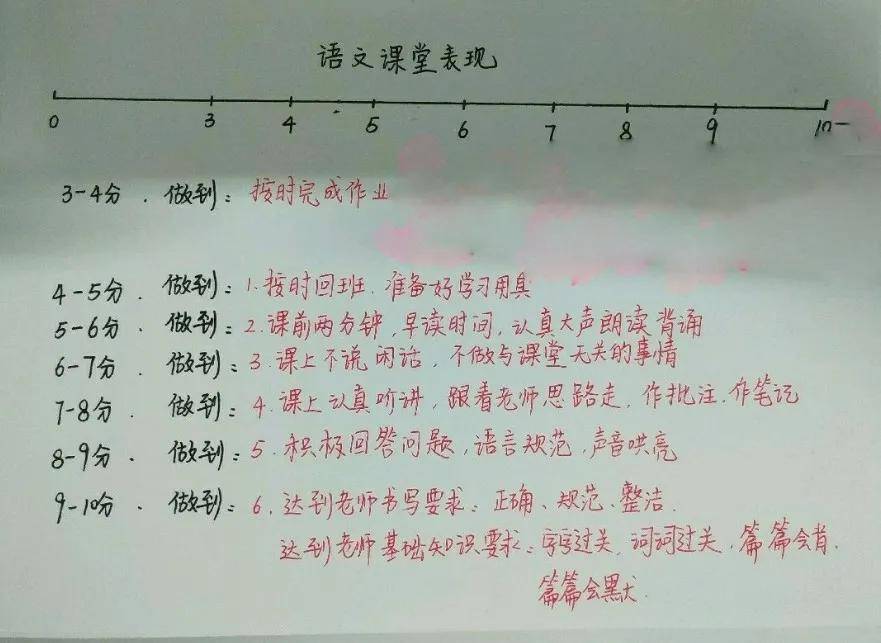 语文课堂表现
0 3 4 5 6 7 8 9 10
3-4分. 做到: 按时完成作业
4-5分. 做到: 1.按时回班. 准备好学习用具
5-6分. 做到: 2.课前两分钟,早读时间,认真大声朗读背诵
6-7分. 做到: 3.课上不说闲话,不做与课堂无关的事情
7-8分. 做到: 4.课上认真听讲,跟着老师思路走,作批注.作笔记
8-9分. 做到: 5.积极回答问题,语言规范,声音哄亮
9-10分. 做到: 6.达到老师书写要求:正确、规范、整洁.
达到老师基础知识要求:字字过关,词词过关,篇篇会背.
篇篇会默.